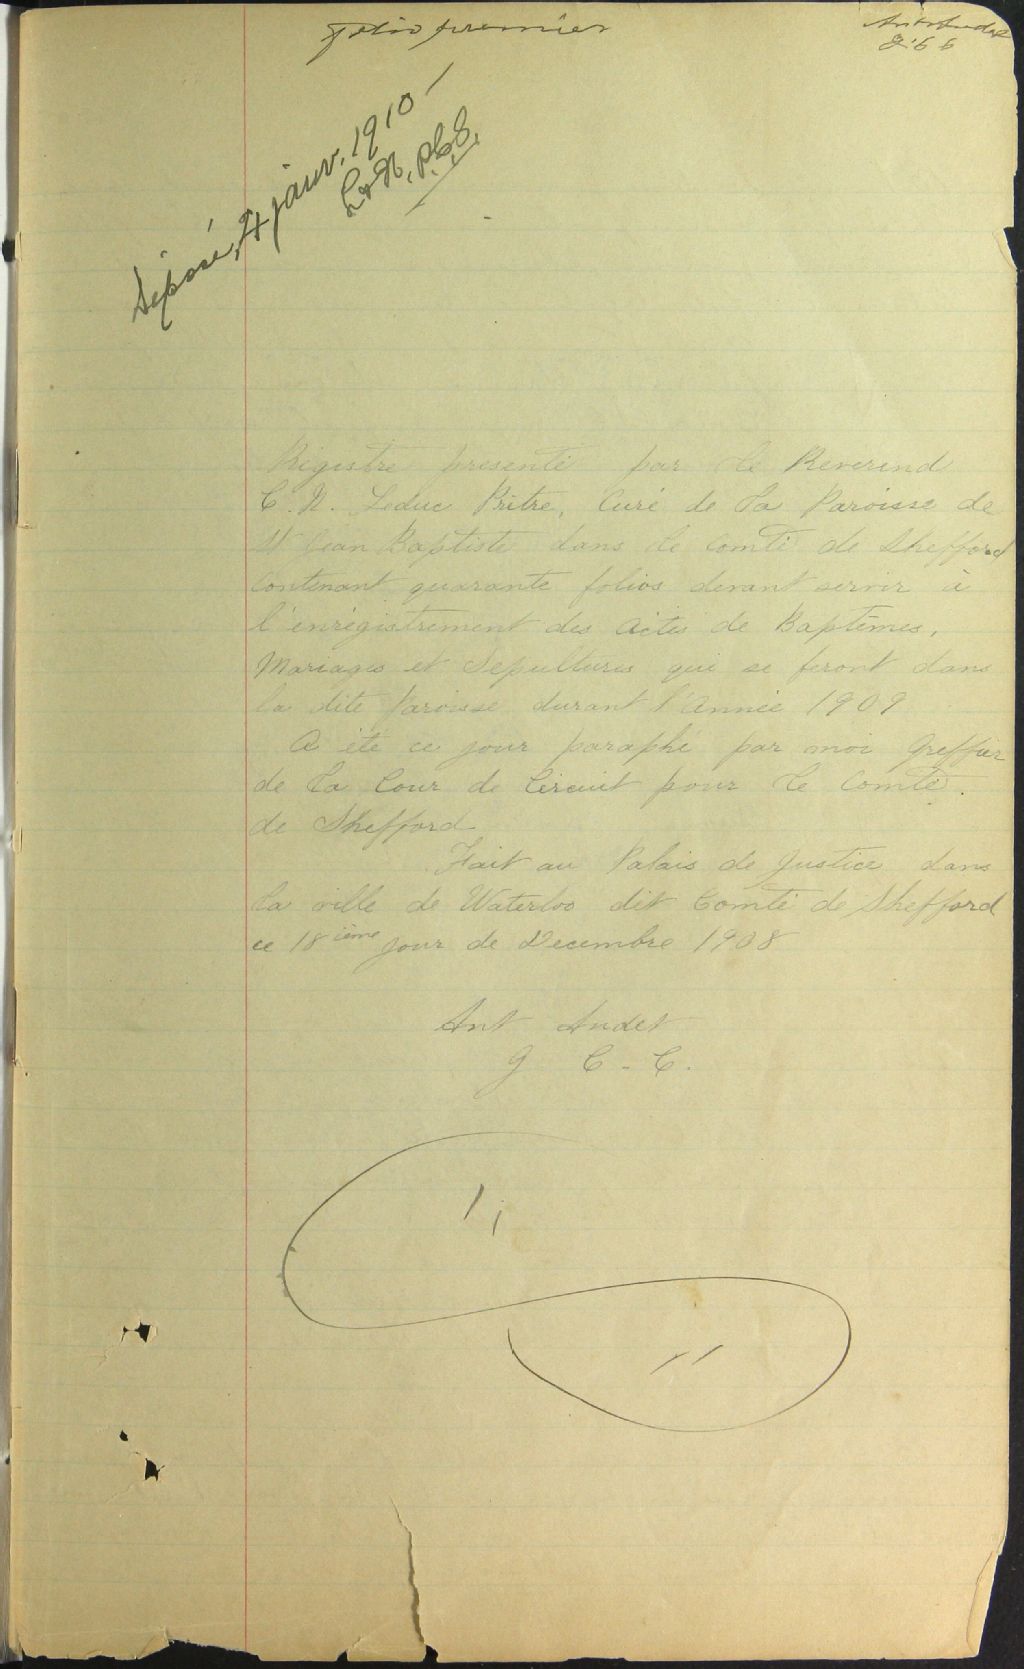 folio premier
Ant Audet
G C C
Déposé, 4 janv. 1910 -
L & N, P.C.S.
Régistre presenté par le Reverend
C. N. Leduc Prêtre, Curé de la Paroisse de
St Jean Baptiste dans le Comté de Shefford
Contenant quarante folios devant servir à
l'enrégistrement des Actes de Baptêmes,
Mariages et Sepultures qui se feront dans
la dite paroisse durant l'Année 1909
A été ce jour paraphé par moi Greffier
de la Cour de Circuit pour le Comté
de Shefford
Fait au Palais de Justice dans
la ville de Waterloo dit Comté de Shefford
ce 18ième jour de Decembre 1908
Ant Audet
G C - C.